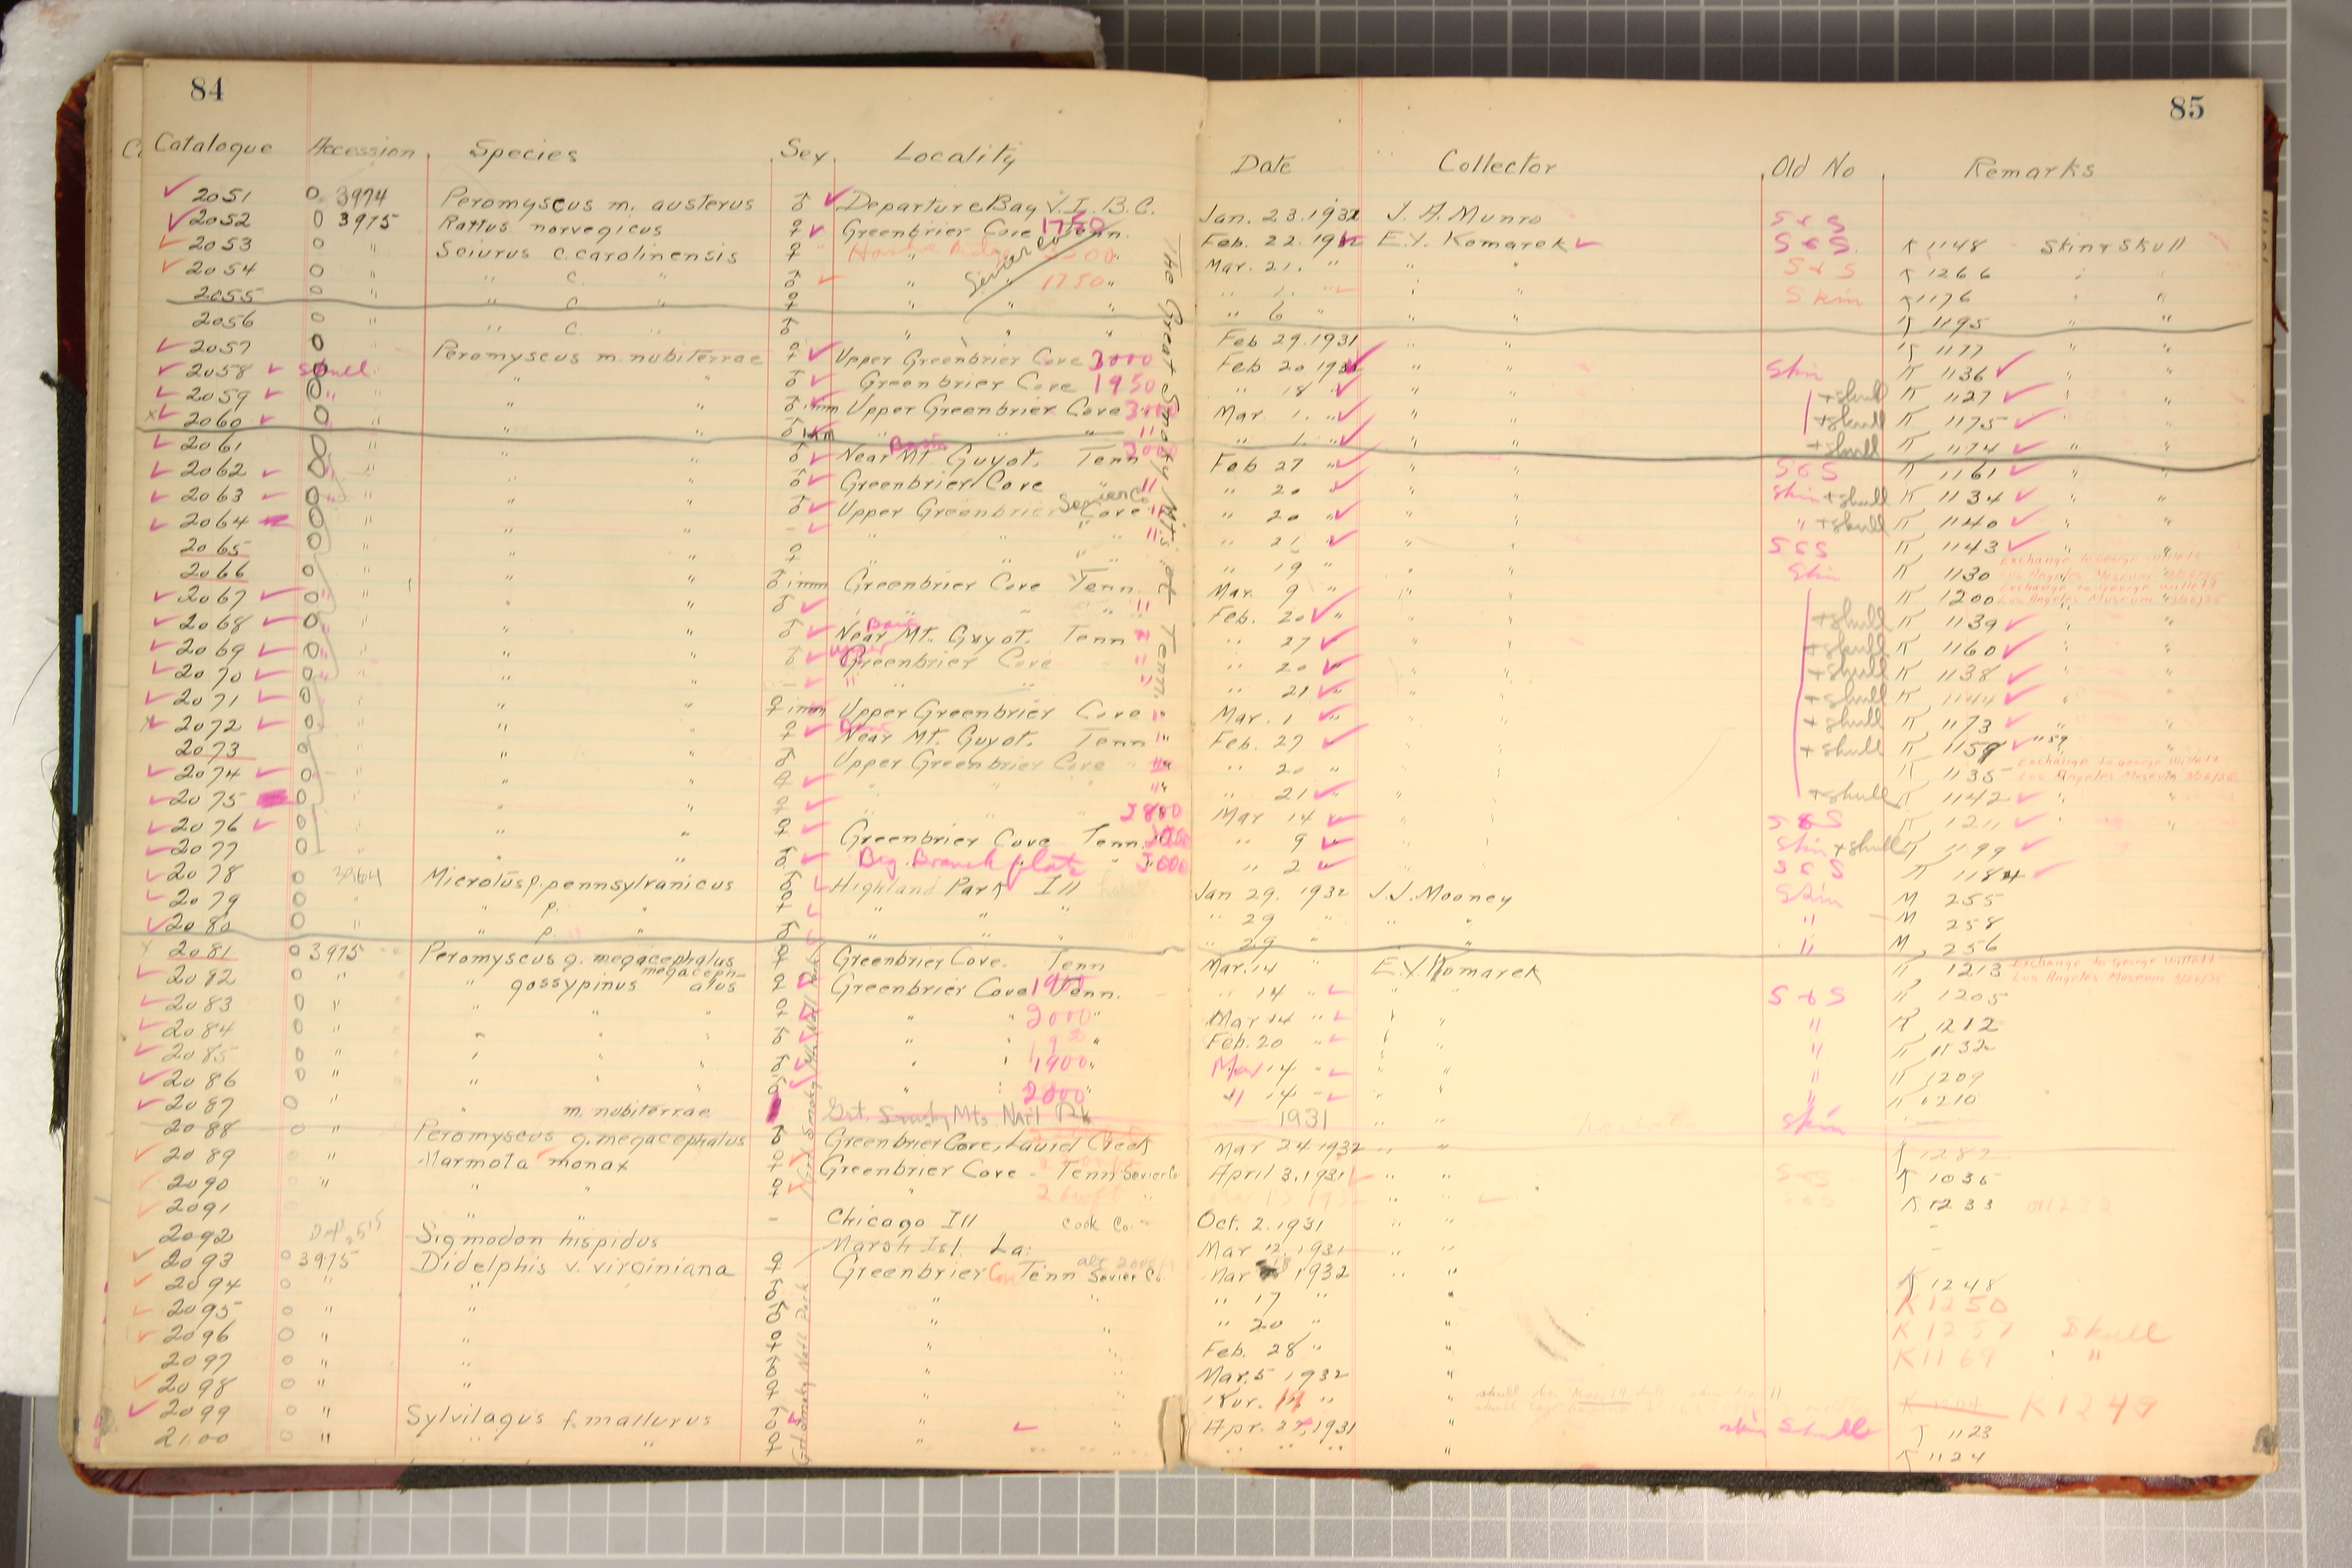 84
85
Catalogue Accession Species Sex Locality Date Collector Old No Remarks
2051 3974 Peromyscus m. austerus ♂ Departure Bay V.I. B.C. Jan. 23. 1932 J. A. Munro S & S
2052 3975 Rattus norvegicus ♀ Greenbrier Cove 1750 Tenn. Feb. 22. 1932 E.V. Komarek S & S. K 1148 Skin & Skull
2053 " Sciurus c. carolinensis ♀ " Mar. 21. " " " S & S K 1266 " "
2054 " " c. " ♂ " 1750 " " 1. " " " Skin K 1176 " "
2055 " " c " ♀ " " " " 6 " " " K 1195 " "
2056 " " c " ♂ " " " Feb 29. 1931 " " K 1177 " "
2057 " Peromyscus m. nubiterrae ♀ Upper Greenbrier Cove 3000 Feb 20 1931 " " Skin K 1136 "
2058 skull " " " ♂ Greenbrier Cove 1950 " 18 " " " + skull K 1127 " "
2059 " " " ♂ imm Upper Greenbrier Cove 3000 Mar 1. " " " + skull K 1175 "
2060 " " " ♂ imm " " " " " 1. " " " + skull K 1174 " "
2061 " " " ♂ Near Mt. Guyot. Tenn Feb 27 " " " S & S K 1161 "
2062 " " " ♂ Greenbrier Cove " " " 20 " " " Skin + skull K 1134 " "
2063 " " " ♂ Upper Greenbrier Cove Sevier Co " " 20 " " " " + skull K 1140 "
2064 " " " - " " " " " 21 " " " S & S K 1143 " "
2065 " " " ♀ " " " " 19 " " " Skin K 1130 Exchange to George Willett Los Angeles Museum
2066 " " " ♂ imm Greenbrier Cove Tenn. Mar. 9 " " " K 1200 Exchange to George Willett Los Angeles Museum
2067 " " " ♂ " " " " Feb. 20 " " " + skull K 1139 " "
2068 " " " ♂ Near Mt. Guyot. Tenn " " 27 " " " + skull K 1160 " "
2069 " " " ♂ Upper Greenbrier Cove " " 20 " " " + skull K 1138 " "
2070 " " " - " " " " " 21 " " " + skull K 1144 "
2071 " " " ♀ imm Upper Greenbrier Cove " Mar. 1 " " " + skull K 1173 " "
2072 " " " ♀ Near Mt. Guyot. Tenn " Feb. 27 " " + skull K 1159 " 59 "
2073 " " " ♂ Upper Greenbrier Cove " " " 20 " " K 1135 Exchange to George Willett Los Angeles Museum
2074 " " " ♀ " " " 21 " " " + skull K 1142 " "
2075 " " " ♀ " " 2800 Mar 14 " " " S & S K 1211 "
2076 " " " ♀ Greenbrier Cove Tenn. " 9 " " " Skin + skull K 1199
2077 " " " ♂ Big Branch flats " 3000 " 2 " " S & S K 1184
2078 3964 Microtus p. pennsylvanicus Highland Park Ill Jan 29. 1932 J.J. Mooney Skin M 255
2079 " " p. " " " " " 29 " " " " M 258
2080 " " p. " ♂ " " " " 29 " " " M 256
2081 3975 Peromyscus g. megacephalus ♀ Greenbrier Cove. Tenn Mar. 14 " E.V. Komarek K 1213 Exchange to George Willett Los Angeles Museum
2082 " " gossypinus megacephalus ♀ Greenbrier Cove Tenn. " 14 " " " S & S K 1205
2083 " " " " ♀ " " 2000 " Mar 14 " " " " K 1212
2084 " " " " ♂ " " " Feb. 20 " " " " K 1132
2085 " " " " ♂ " " 1900 " Mar 14 " " " " K 1209
2086 " " " " " " 2000 " " 14 " " " " K 1210
2087 " " m. nubiterrae Grt. Smoky Mts. Nat'l Pk 1931 " " Skin
2088 " Peromyscus g. megacephalus ♂ Greenbrier Cove, Laurel Creek Mar 24 1932 " " K 1282
2089 " Marmota monax ♀ Greenbrier Cove - Tenn Sevier Co April 3. 1931 " " K 1036
2090 " " " ♀ " " " " K 1233
2091 " " - Chicago Ill Cook Co. Oct. 2. 1931 " " -
2092 Sigmodon hispidus Marsh Isl. La. Mar 12. 1931 " " -
2093 3975 Didelphis v. virginiana ♀ Greenbrier Cove Tenn Sevier Co. Mar 1932 " " K 1248
2094 " " ♂ " " " 17 " " K 1250
2095 " " ♂ " " " 20 " " K 1257 Skull
2096 " " ♀ " " Feb. 28 " " K 1169 "
2097 " " ♂ " " Mar. 5 1932 "
2098 " " ♀ " " Mar. 14 " " K 1249
2099 " Sylvilagus f. mallurus ♂ " " Apr. 27, 1931 " skin Skull K 1123
2100 " " " ♀ " " " " " " K 1124
The Great Smoky Mts. of Tenn.
Grt Smoky Mts. Nat'l Park
Grt Smoky Nat'l Park